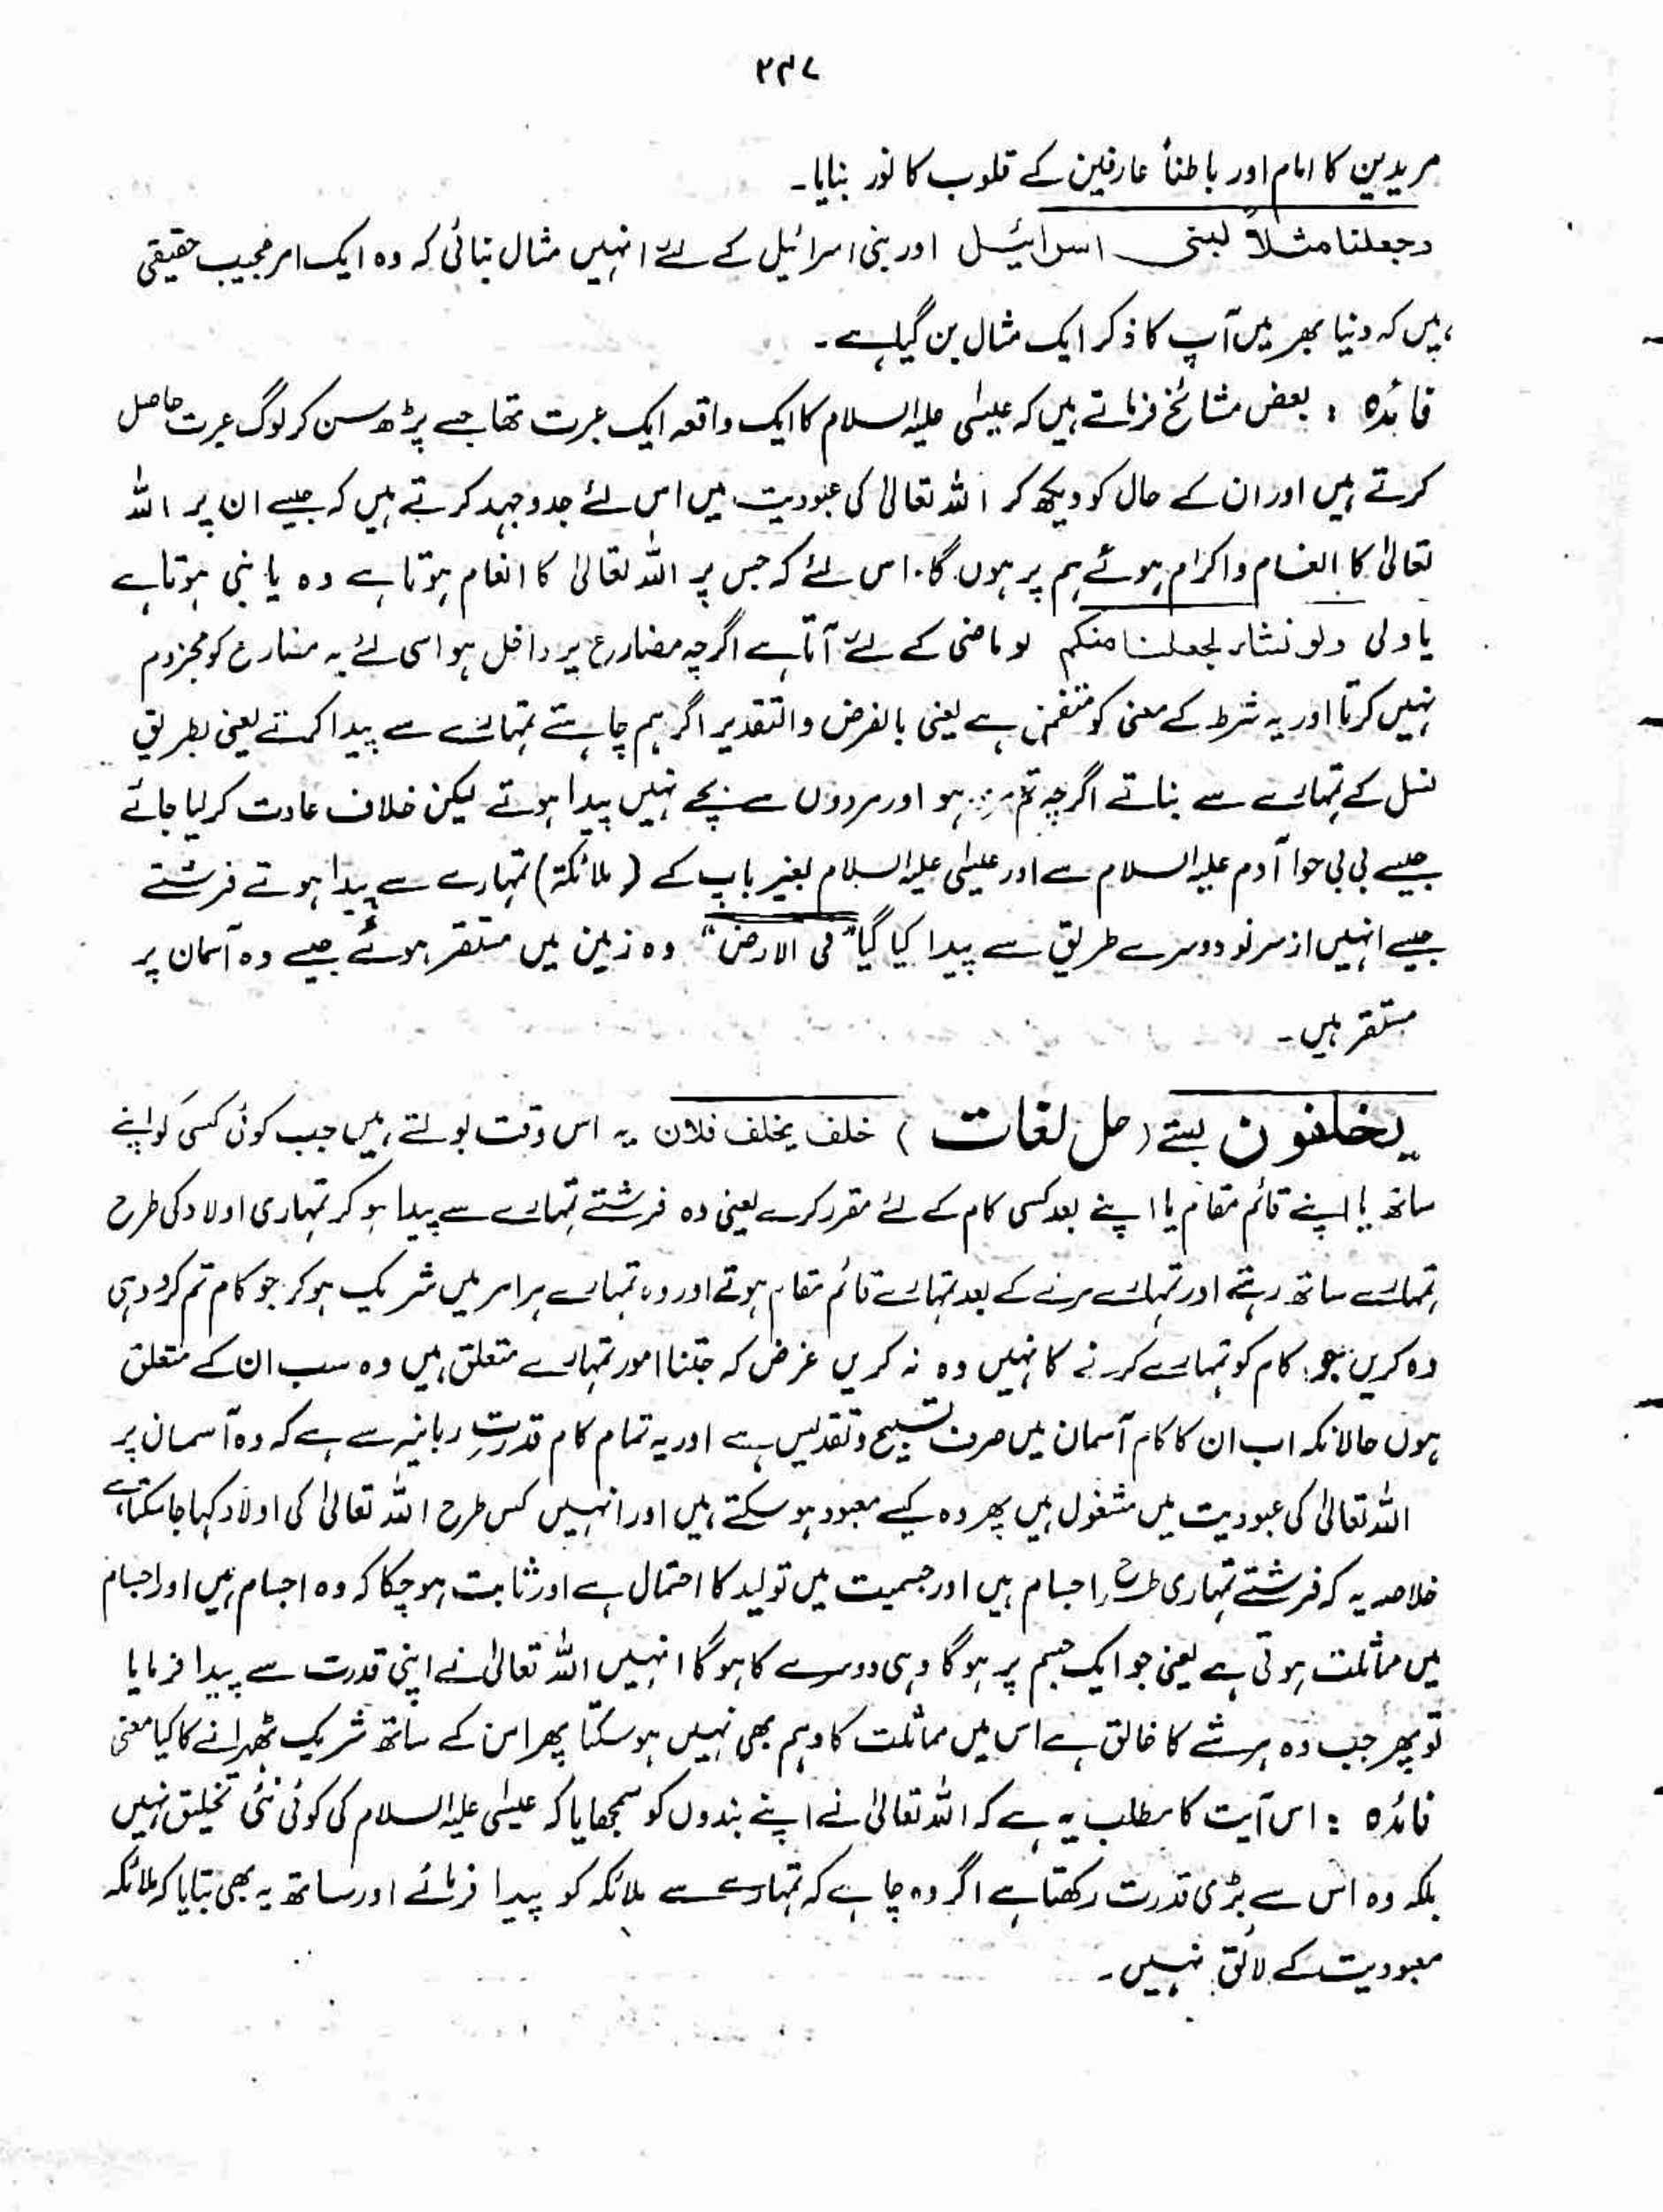 ۲۴۷
مریدین کا امام اور باطناً عارفین کے قلوب کا نور بنایا۔
وجعلنا مثلاً لبنی اسرائیل اور بنی اسرائیل کے لئے انہیں مثال بنائی کہ وہ ایک امر عجیب حقیقی
ہیں کہ دنیا بھر میں آپ کا ذکر ایک مثال بن گیا ہے۔
فائدہ : بعض مشائخ فرماتے ہیں کہ عیسٰی علیہ السلام کا ایک واقعہ ایک عبرت تھا جسے پڑھ سن کر لوگ عبرت حاصل
کرتے ہیں اور ان کے حال کو دیکھ کر اللہ تعالیٰ کی عبودیت میں اس لئے جدوجہد کرتے ہیں کہ جیسے ان پر اللہ
تعالیٰ کا انعام و اکرام ہوئے ہم پر ہوں گا۔ اس لئے کہ جس پر اللہ تعالیٰ کا انعام ہوتا ہے وہ یا نبی ہوتا ہے
یا ولی ولو نشاء لجعلنا منکم لو ماضی کے لئے آتا ہے اگرچہ مضارع پر داخل ہو اسی لئے یہ مضارع کو مجزوم
نہیں کرتا اور یہ شرط کے معنی کو متضمن ہے یعنی بالفرض والتقدیر اگر ہم چاہتے تمہارے سے پیدا کرتے یعنی بطریق
نسل کے تمہارے سے بناتے اگرچہ تم ہو اور مردوں سے بچے نہیں پیدا ہوتے لیکن خلاف عادت کر لیا جائے
جیسے بی بی حوا آدم علیہ السلام سے اور عیسٰی علیہ السلام بغیر باپ کے (ملائکۃ) تمہارے سے پیدا ہوتے فرشتے
جیسے انہیں از سر نو دوسرے طریق سے پیدا کیا گیا "فی الارض" وہ زمین میں مستقر ہوئے جیسے وہ آسمان پر
مستقر ہیں۔
یخلفون بستے (حل لغات) خلف یخلف فلان یہ اس وقت بولتے ہیں جب کوئی کسی کو اپنے
ساتھ یا اپنے قائم مقام یا اپنے بعد کسی کام کے لئے مقرر کرے یعنی وہ فرشتے تمہارے سے پیدا ہو کر تمہاری اولاد کی طرح
تمہارے ساتھ رہتے اور تمہارے مرنے کے بعد تمہارے قائم مقام ہوتے اور وہ تمہارے ہر امر میں شریک ہو کر جو کام تم کرو وہی
وہ کریں جو کام کو تمہارے کرنے کا نہیں وہ نہ کریں غرض کہ جتنا امور تمہارے متعلق ہیں وہ سب ان کے متعلق
ہوں حالانکہ اب ان کا کام آسمان میں صرف تسبیح و تقدیس ہے اور یہ تمام کام قدرتِ ربانیہ سے ہے کہ وہ آسمان پر
اللہ تعالیٰ کی عبودیت میں مشغول ہیں پھر وہ کیسے معبود ہو سکتے ہیں اور انہیں کس طرح اللہ تعالیٰ کی اولاد کہا جا سکتا ہے
خلاصہ یہ کہ فرشتے تمہاری طرح اجسام ہیں اور جسمیت میں تولید کا احتمال ہے اور ثابت ہو چکا کہ وہ اجسام ہیں اور اجسام
میں مماثلت ہوتی ہے یعنی جو ایک جسم پر ہو گا وہی دوسرے کا ہو گا انہیں اللہ تعالیٰ نے اپنی قدرت سے پیدا فرمایا
تو پھر جب وہ ہر شے کا خالق ہے اس میں مماثلت کا وہم بھی نہیں ہو سکتا پھر اس کے ساتھ شریک ٹھہرانے کا کیا معنی
فائدہ : اس آیت کا مطلب یہ ہے کہ اللہ تعالیٰ نے اپنے بندوں کو سمجھایا کہ عیسٰی علیہ السلام کی کوئی نئی تخلیق نہیں
بلکہ وہ اس سے بڑی قدرت رکھتا ہے اگر وہ چاہے کہ تمہارے سے ملائکہ کو پیدا فرمائے اور ساتھ یہ بھی بتایا کہ ملائکہ
معبودیت کے لائق نہیں۔